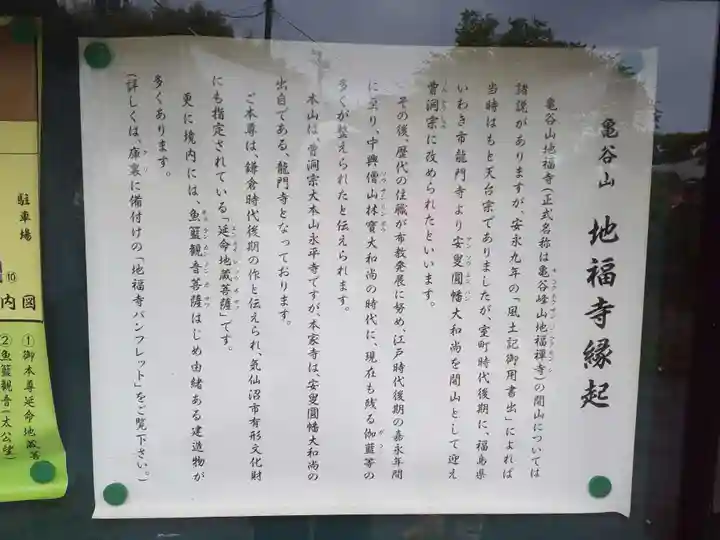 亀谷山 地福寺縁起
亀谷山地福寺(正式名称は亀谷峰山地福禪寺)の開山については
諸説がありますが、安永九年の「風土記御用書出」によれば
当時はもと天台宗でありましたが、室町時代後期に、福島県
いわき市龍門寺より安叟圓幡大和尚を開山として迎え
曹洞宗に改められたといいます。
その後、歴代の住職が布教発展に努め、江戸時代後期の嘉永年間
に至り、中興僧山林寳大和尚の時代に、現在も残る伽藍等の
多くが整えられたと伝えられます。
本山は、曹洞宗大本山永平寺ですが、本家寺は、安叟圓幡大和尚の
出自である、龍門寺となっております。
ご本尊は、鎌倉時代後期の作と伝えられ、気仙沼市有形文化財
にも指定されている「延命地蔵菩薩」です。
更に境内には、魚籃観音菩薩はじめ由緒ある建造物が
多くあります。
(詳しくは、庫裏に備付けの「地福寺パンフレット」をご覧下さい。)
駐車場
⑩
内図
①御本尊延命地蔵菩
②魚籃観音(太公望)